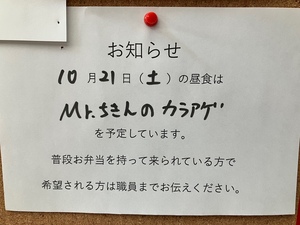 お知らせ
10月21日(土)の昼食は
Mr.ちきんのカラアゲ
を予定しています。
普段お弁当を持って来られている方で
希望される方は職員までお伝えください。